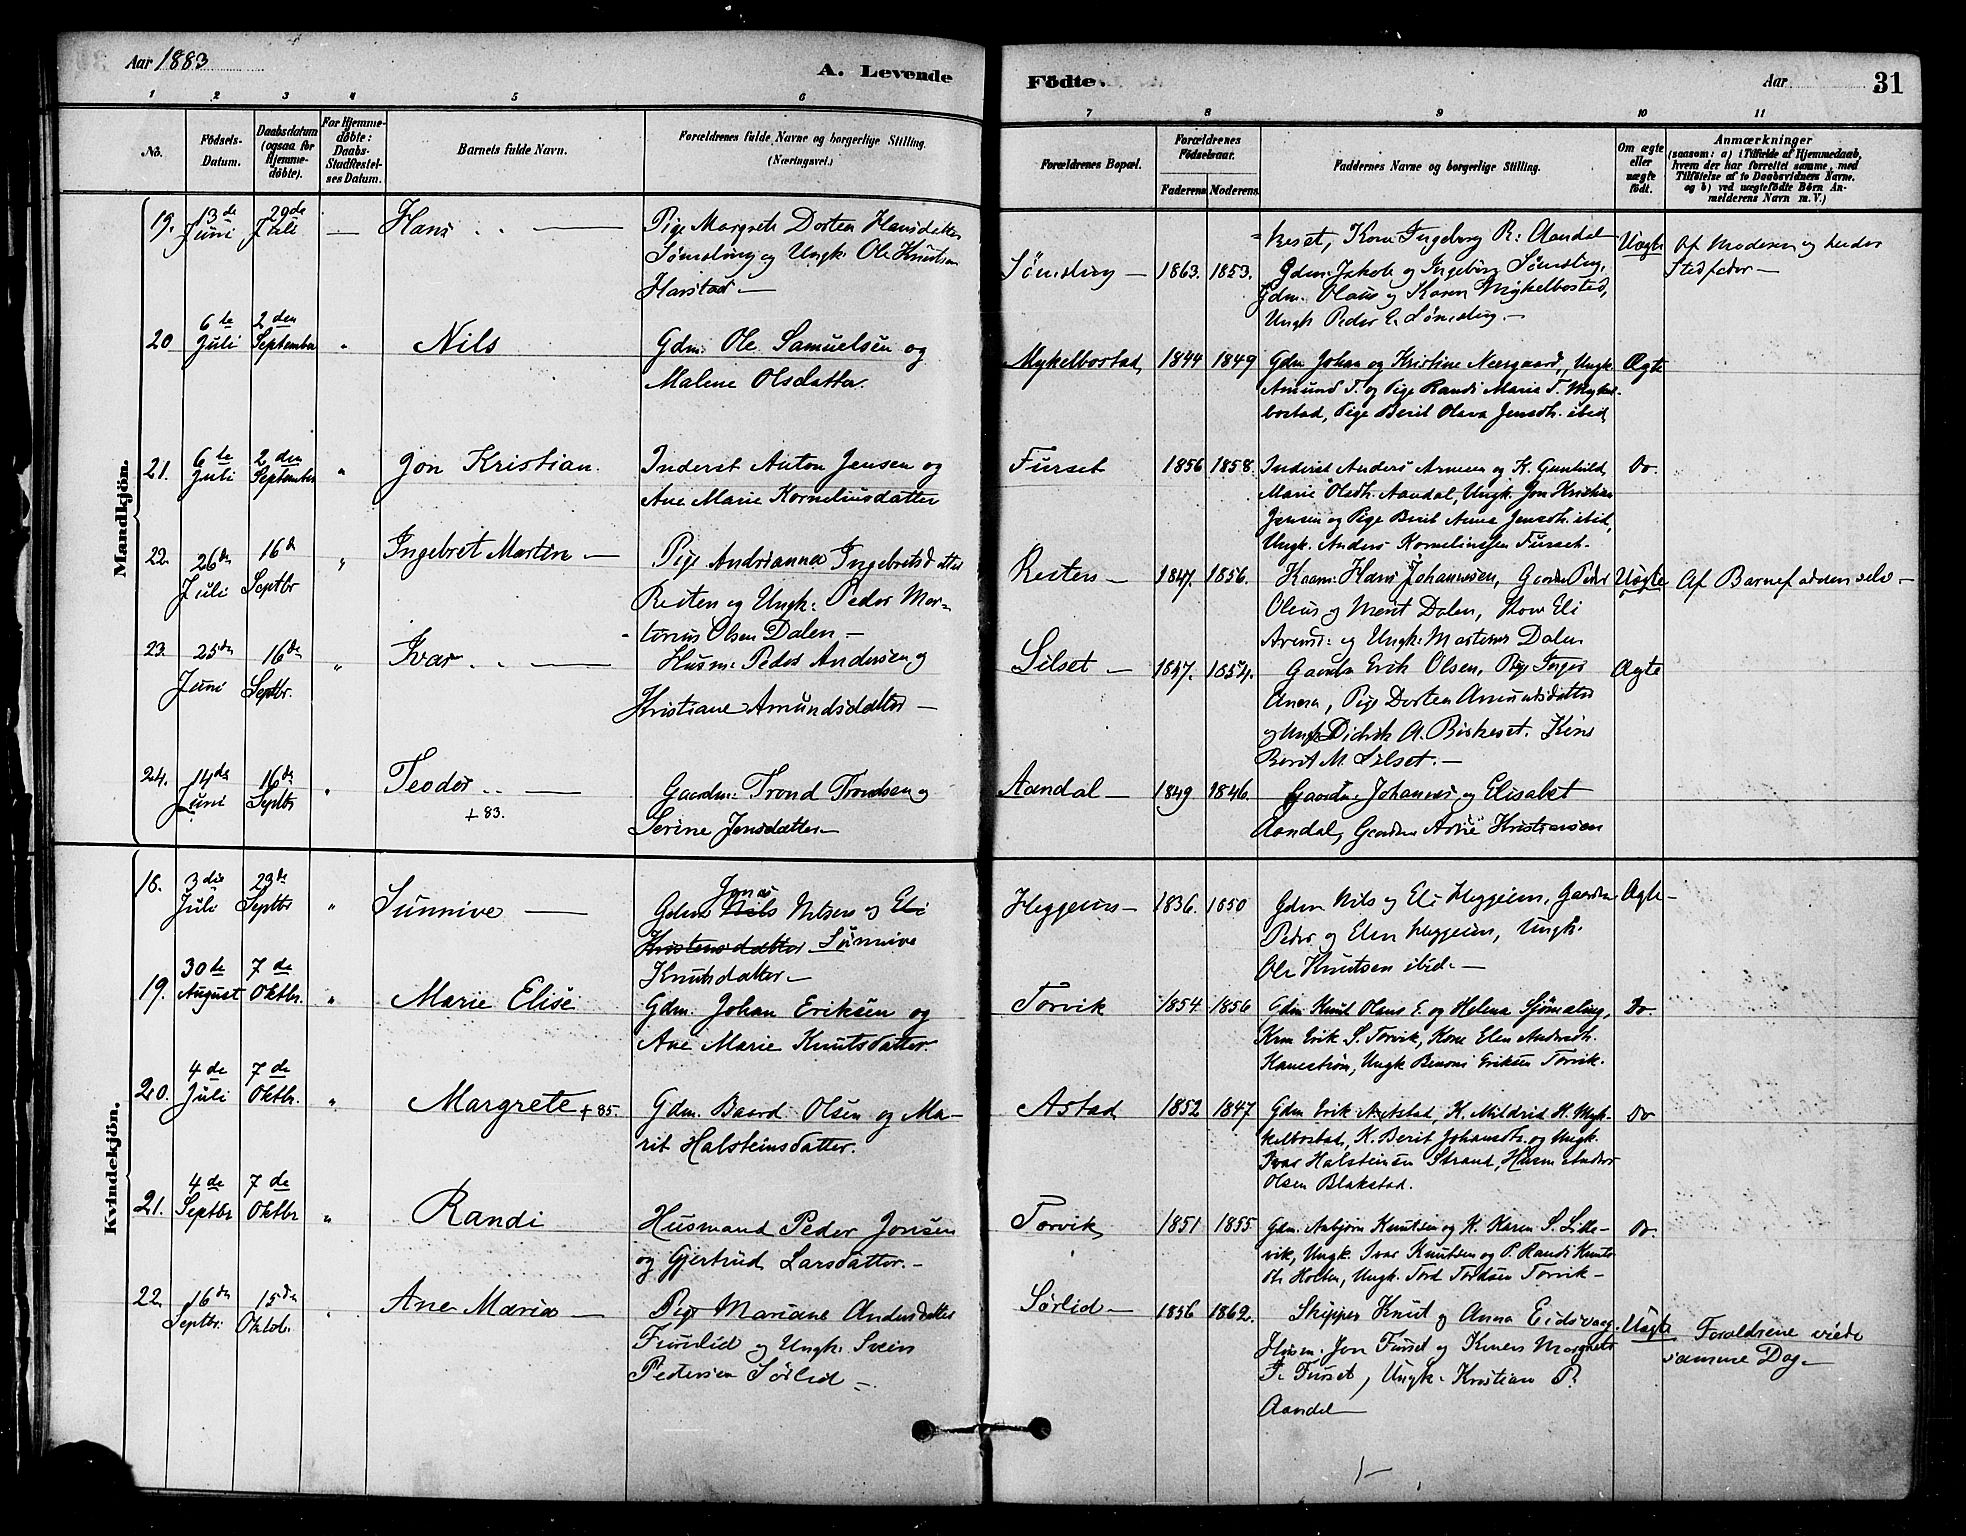 Aar 1883
A. Levende
Fødte.
Aar
31
1 2 3 4 5 6 7 8 9 10 11
No.
Fødsels-
Datum.
Daabsdatum
(ogsaa for
Hjemme-
døbte).
For Hjemme-
døbte:
Daabs-
Stadfæstel-
ses Datum.
Barnets fulde Navn.
Forældrenes fulde Navne og borgerlige Stilling.
(Næringsvei.)
Forældrenes Bopæl.
Forældrenes
Fødselsaar.
Faderens
Moderens
Faddernes Navne og borgerlige Stilling.
Om ægte
eller
uægte
født.
Anmærkninger
(saasom: a) i Tilfælde af Hjemmedaab,
hvem der har forrettet samme, med
Tilføielse af to Daabsvidners Navne.
og b) ved uægtefødte Børn An-
melderens Navn m. V.)
Mandkjön.
19. 13de Juni 29de Juli — Hans
Pige Margrete Dorten Hansdatter
Sømsling og Ungk: Ole Knutsen
Harstad —
Sømsling — 1863. 1853.
=keset, Kone Ingeborg R: Aandal
Gdm: Jakob og Ingeborg Sømsling,
Gdm: Olaus og Karen Mykelbostad,
Ungk Peder E. Sømsling. —
Uægte
Af Moderen og hendes
Stedfader —
20 6te Juli 2den September " Nils
Gdm: Ole Samuelsen og
Malene Olsdatter.
Mykelbostad, 1844 1849
Gdm Johan og Kristine Neergaard, Ungk.
Amund T. og Pige Randi Maria T. Mykel-
bostad, Pige Berit Olava Jensdh. ibid,
Ægte
21. 6te Juli 2den September " Jon Kristian
Inderst Anton Jensen og
Ane Marie Korneliusdatter
Furset 1856 1858.
Inderst Anders Arnesen og K. Gunhild
Marie Olsdh. Aandal, Ungk. Jon Kristian
Jensen og Pige Berit Anna Jensdh. ibid,
Ungk. Anders Korneliussen Furset.
Do.
22. 26de Juli 16de Septbr " Ingebret Martin —
Pige Andrianna Ingebretsdatter
Resten og Ungk: Peder Mar-
tinus Olsen Dalen —
Resten — 1847. 1856.
Kaarm: Hans Johannesen, Gaardm Peder
Olaus og Merit Dalen, Kone Eli
Arnsd: og Ungk: Martinus Dalen
Uægte
Af Barnefaderen selv —
23. 25de Juni 16de Septbr. " Ivar
Husm: Peder Andersen og
Kristiane Amundsdatter —
Silset — 1847. 1854.
Gaardm Erik Olsen, Pige Inger
Anna, Pige Dorten Amundsdatter
og Ungk Didrik A. Birkeset. Kone
Berit M. Silset. —
Ægte
24. 14de Juni 16de Septbr " Teodor
+ 83.
Gaardm: Trond Trondsen og
Serine Jensdatter —
Aandal — 1849 1846.
Gaardm: Johannes og Elisabet
Aandal, Gaardm Arne Kristiansen
Kvindekjön.
18. 3die Juli 23de Septbr " Sunnive —
Jonas
Gdm Nils Nilsen og Eli
Kristensdatter Sunnive
Knutsdatter —
Heggeim — 1836. 1850
Gdm Nils og Eli Heggeim, Gaardm
Peder og Elen Heggeim, Ungk.
Ole Knutsen ibid. —
Ægte —
19. 30te August 7de Oktbr. " Marie Elise
Gdm. Johan Eriksen og
Ane Marie Knutsdatter.
Torvik 1854 1856
Gdm Knut Olaus E. og Helena Sjømæling,
Krm Erik S. Torvik, Kone Elen Andersdh.
Hanestrøm, Ungk Benoni Eriksen Torvik.
Do.
20. 4de Juli 7de Oktbr. " Margrete + 85.
Gdm. Baard Olsen og Ma-
rit Halsteinsdatter.
Astad 1852 1847
Gdm Erik A. Astad, K. Mildrid H. Myk-
kelbostad, K. Berit Johansdh. og Ungk.
Ivar Halsteinsen Strand, Husm Anders
Olsen Blakstad.
Do
21. 4de Septbr 7de Oktbr " Randi
Husmand Peder Jonsen
og Gjertrud Larsdatter. —
Torvik 1851 1855
Gdm. Asbjørn Knutsen og K. Karen S. Lille-
vik, Ungk. Ivar Knutsen og P. Randi Knuts-
dh. Holten, Ungk. Tord Tordsen Torvik —
Do.
22. 16de Septbr. 15de Oktob. " Ane Maria —
Pige Mariane Andersdatter
Furulid og Ungk. Svein
Pedersen Sørlid —
Sørlid — 1856 1862.
Skipper Knut og Anna Eidsvaag.
Husm. Jon Furset og Konen Margrete
T. Furset, Ungk. Kristian P.
Aandal —
Uægte
Forældrene viede
samme Dag —